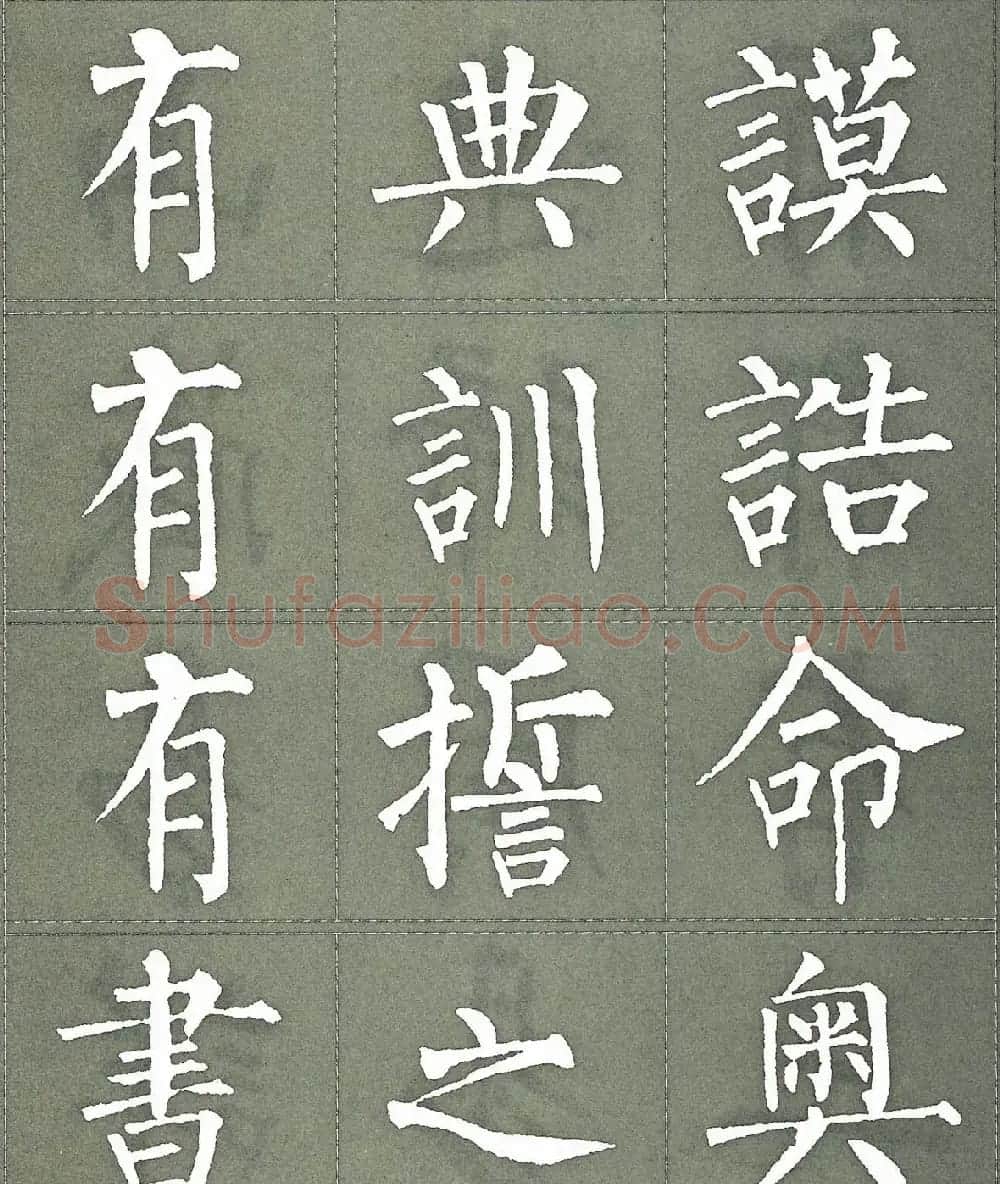 有典謨
有訓誥
有誓命
書之奧
Shufaziliao.COM